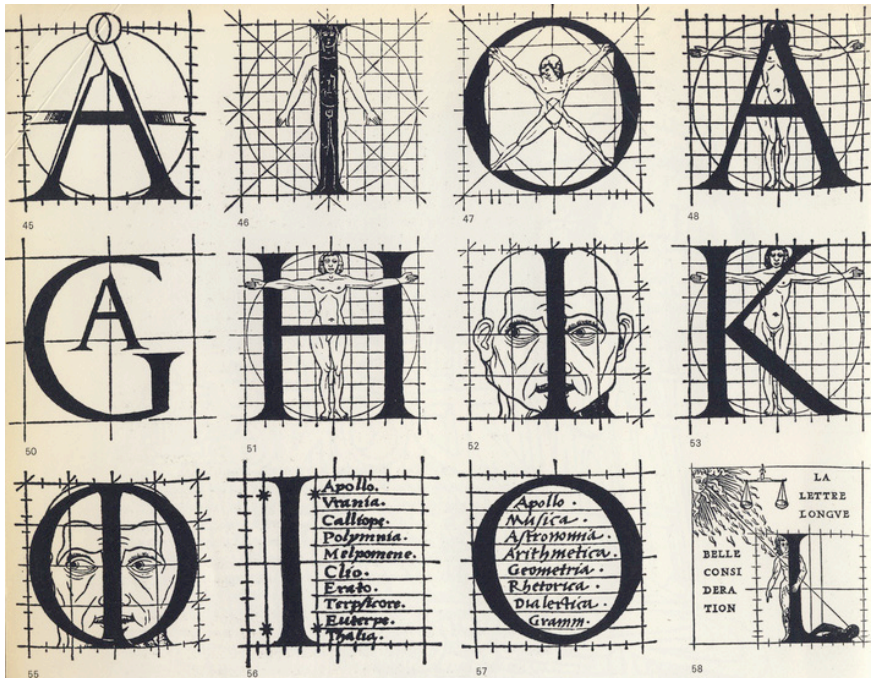 A
I
O
A
45
46
47
48
G
A
H
I
K
50
51
52
53
O
I
I
Apollo.
Vrania.
Calliope.
Polymnia.
Melpomene.
Clio.
Erato.
Terpsicore.
Euterpe.
Thalia.
O
Apollo.
Musica.
Astronomia.
Arithmetica.
Geometria.
Rhetorica.
Dialectica.
Gramm.
LA
LETTRE
LONGVE
BELLE
CONSI
DERA
TION
L
55
56
57
58